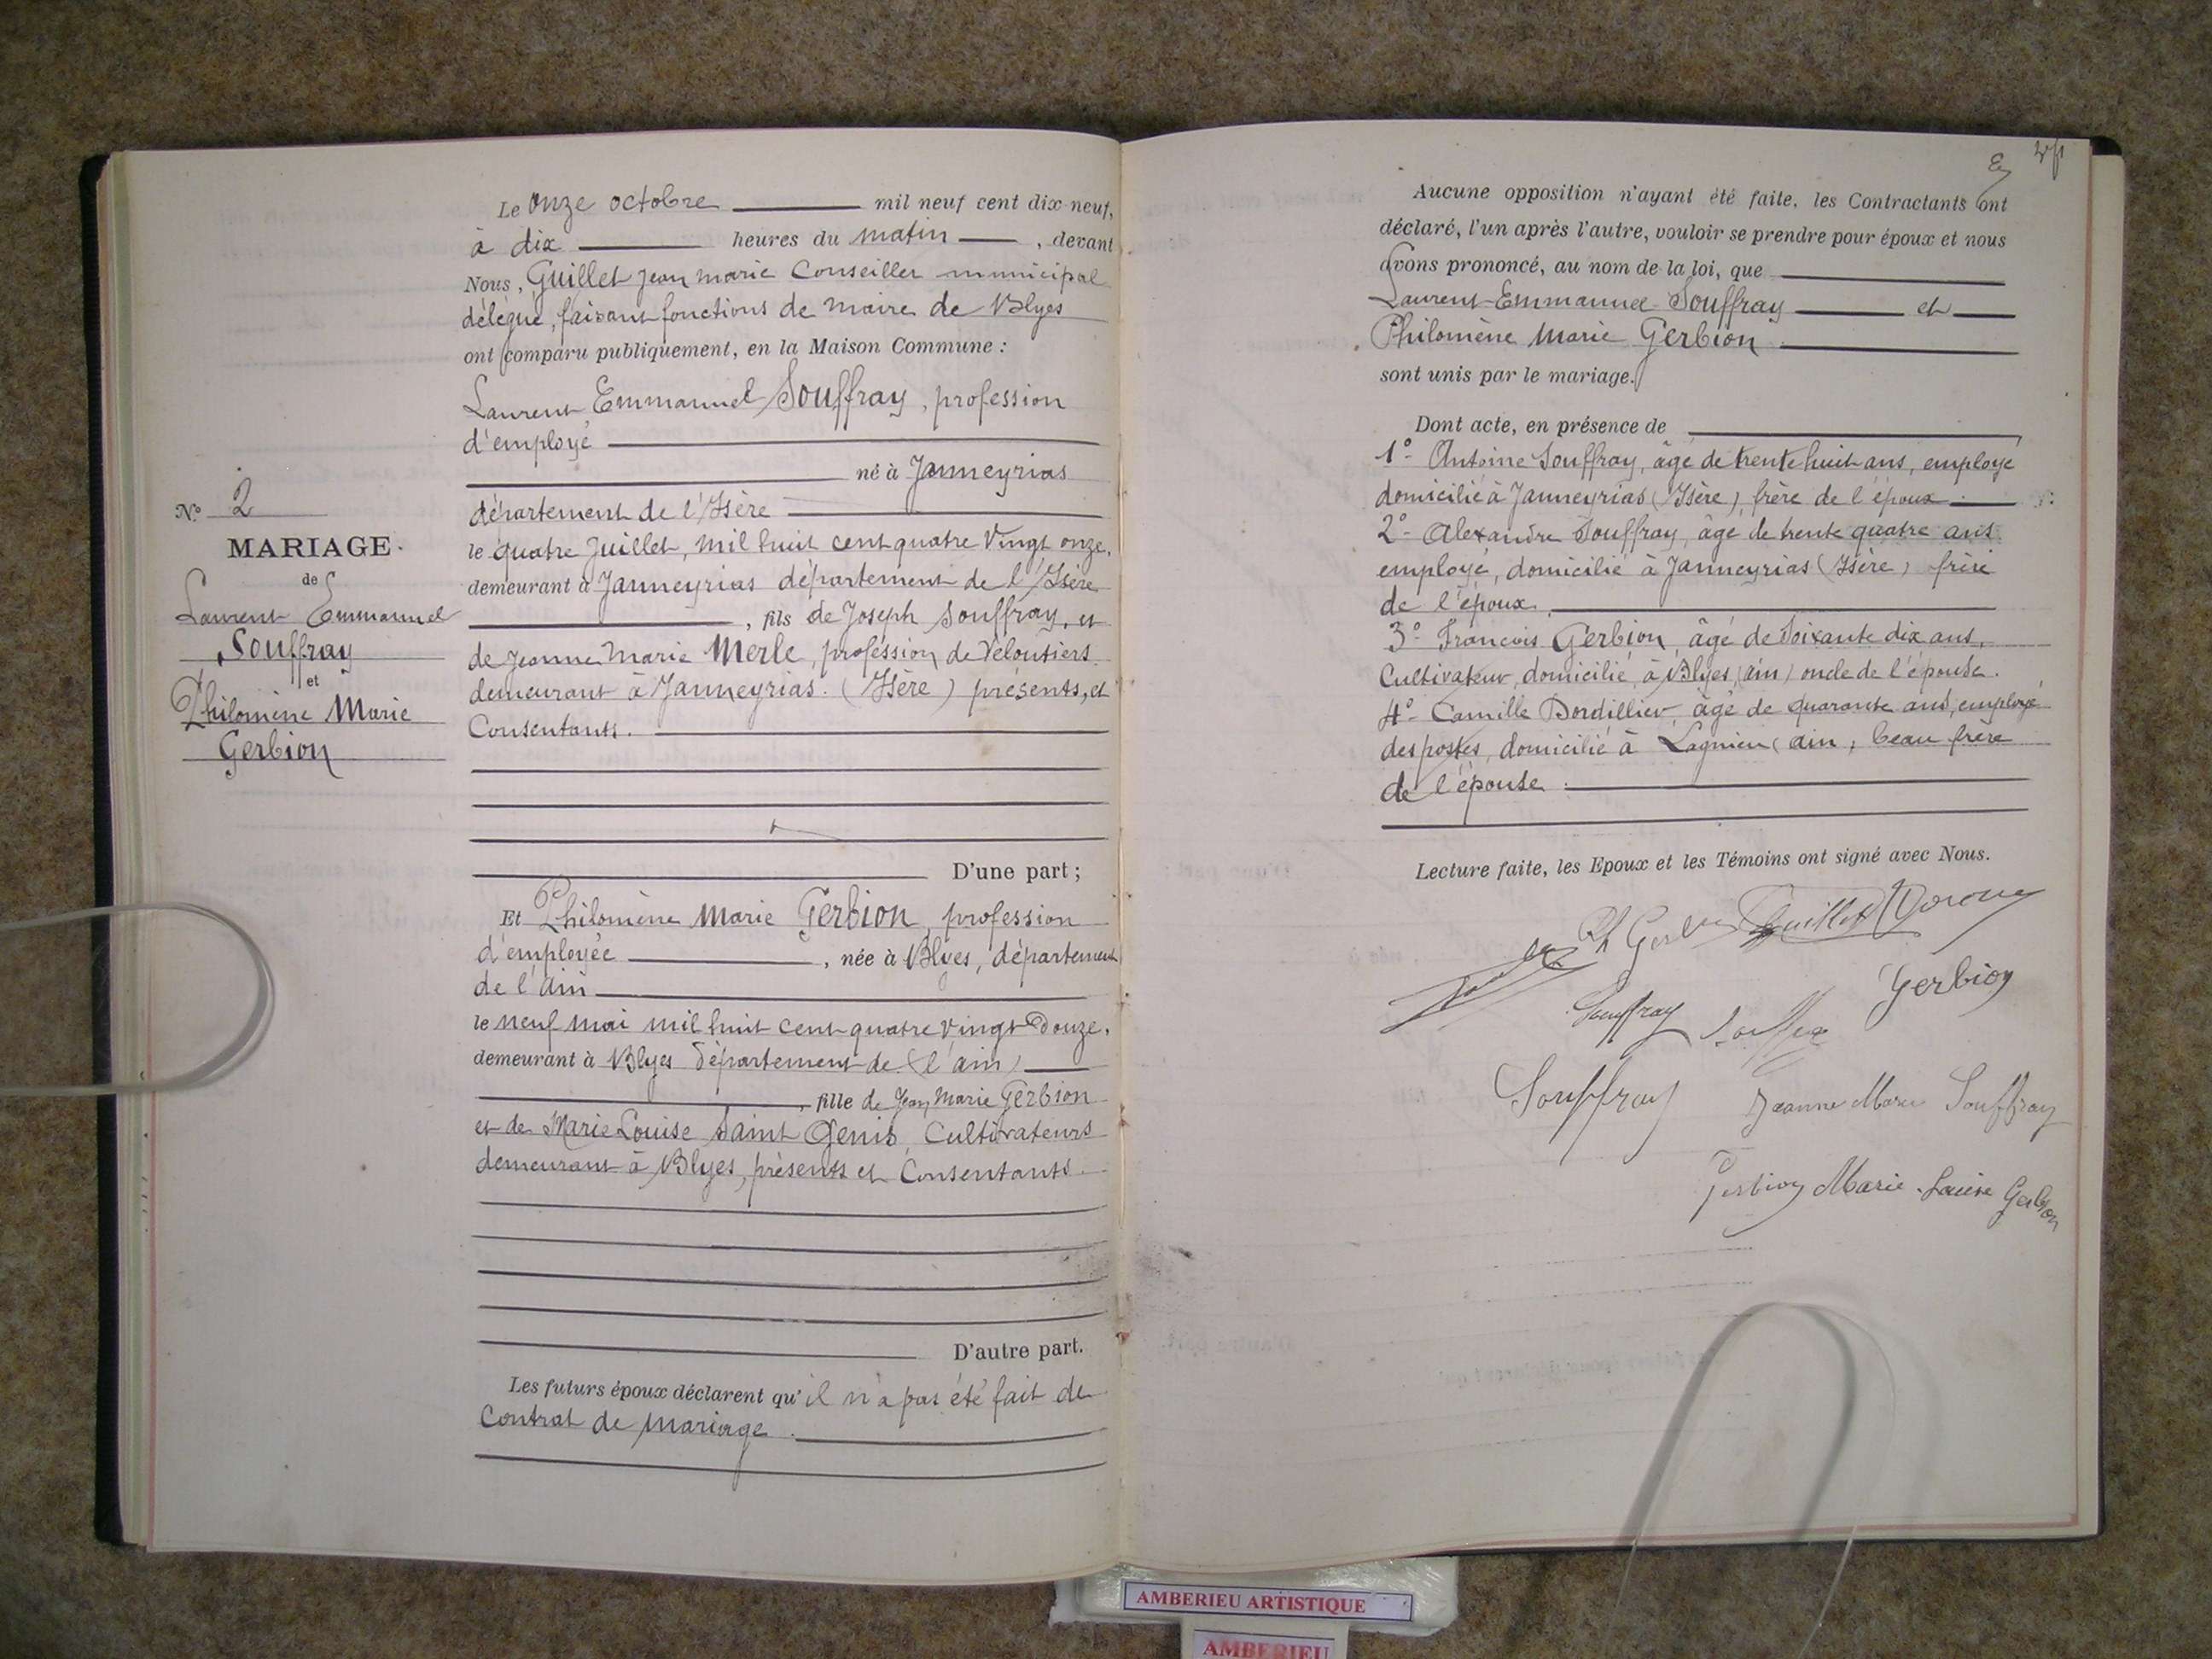 N.º 2
MARIAGE
de
Laurent Emmanuel
Souffray
et
Philomène Marie
Gerbion
Le onze octobre mil neuf cent dix-neuf,
à dix heures du matin, devant
Nous, Guillet Jean marie Conseiller municipal
délégué, faisant fonctions de maire de Blyes
ont comparu publiquement, en la Maison Commune :
Laurent Emmanuel Souffray, profession
d'employé
né à Janneyrias
département de l'Isère
le quatre Juillet, mil huit cent quatre Vingt onze,
demeurant à Janneyrias département de l'Isère
, fils de Joseph Souffray, et
de Jeanne Marie Merle, profession de Veloutiers
demeurant à Janneyrias. (Isère) présents, et
Consentants.
D'une part ;
Et Philomène Marie Gerbion, profession
d'employée, née à Blyes, département
de l'Ain
le neuf mai mil huit cent quatre vingt Douze,
demeurant à Blyes département de (l'ain)
, fille de Jean Marie Gerbion
et de Marie Louise Saint Genis Cultivateurs
demeurant à Blyes, présents et Consentants.
D'autre part.
Les futurs époux déclarent qu'il n'a pas été fait de
Contrat de mariage.
Aucune opposition n'ayant été faite, les Contractants ont
déclaré, l'un après l'autre, vouloir se prendre pour époux et nous
avons prononcé, au nom de la loi, que
Laurent Emmanuel Souffray et
Philomène Marie Gerbion
sont unis par le mariage.
Dont acte, en présence de
1º Antoine Souffray, âgé de trente huit ans, employé
domicilié à Janneyrias (Isère), frère de l'époux.
2º Alexandre Souffray, âgé de trente quatre ans
employé, domicilié à Janneyrias (Isère) frère
de l'époux.
3º Francois Gerbion, âgé de Soixante dix ans,
Cultivateur, domicilié, à Blyes, (ain) oncle de l'épouse.
4º Camille Dordillier, âgé de quarante ans, employé
des postes, domicilié à Lagnieu (ain, beau frère
de l'épouse.
Lecture faite, les Epoux et les Témoins ont signé avec Nous.
Ph Gerbion Guillet
Gerbion
Souffray
Souffray Jeanne Marie Souffray
Gerbion Marie-Louise Gerbion
AMBERIEU ARTISTIQUE
AMBERIEU